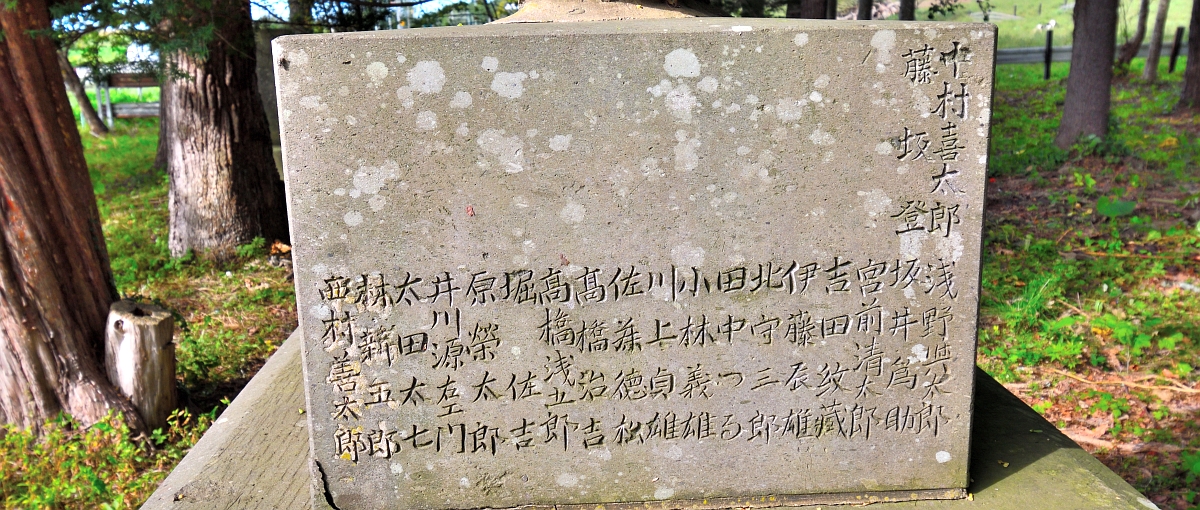 中村喜太郎
藤坂登
浅野與太郎
坂井為助
宮前清太郎
吉田紋藏
伊藤辰雄
北守三郎
田中つる
小林義雄
川上貞雄
佐藤徳松
髙橋治吉
髙橋浅五郎
堀佐吉
原榮太郎
井川源左エ門
太田太七
林新五郎
西村善太郎